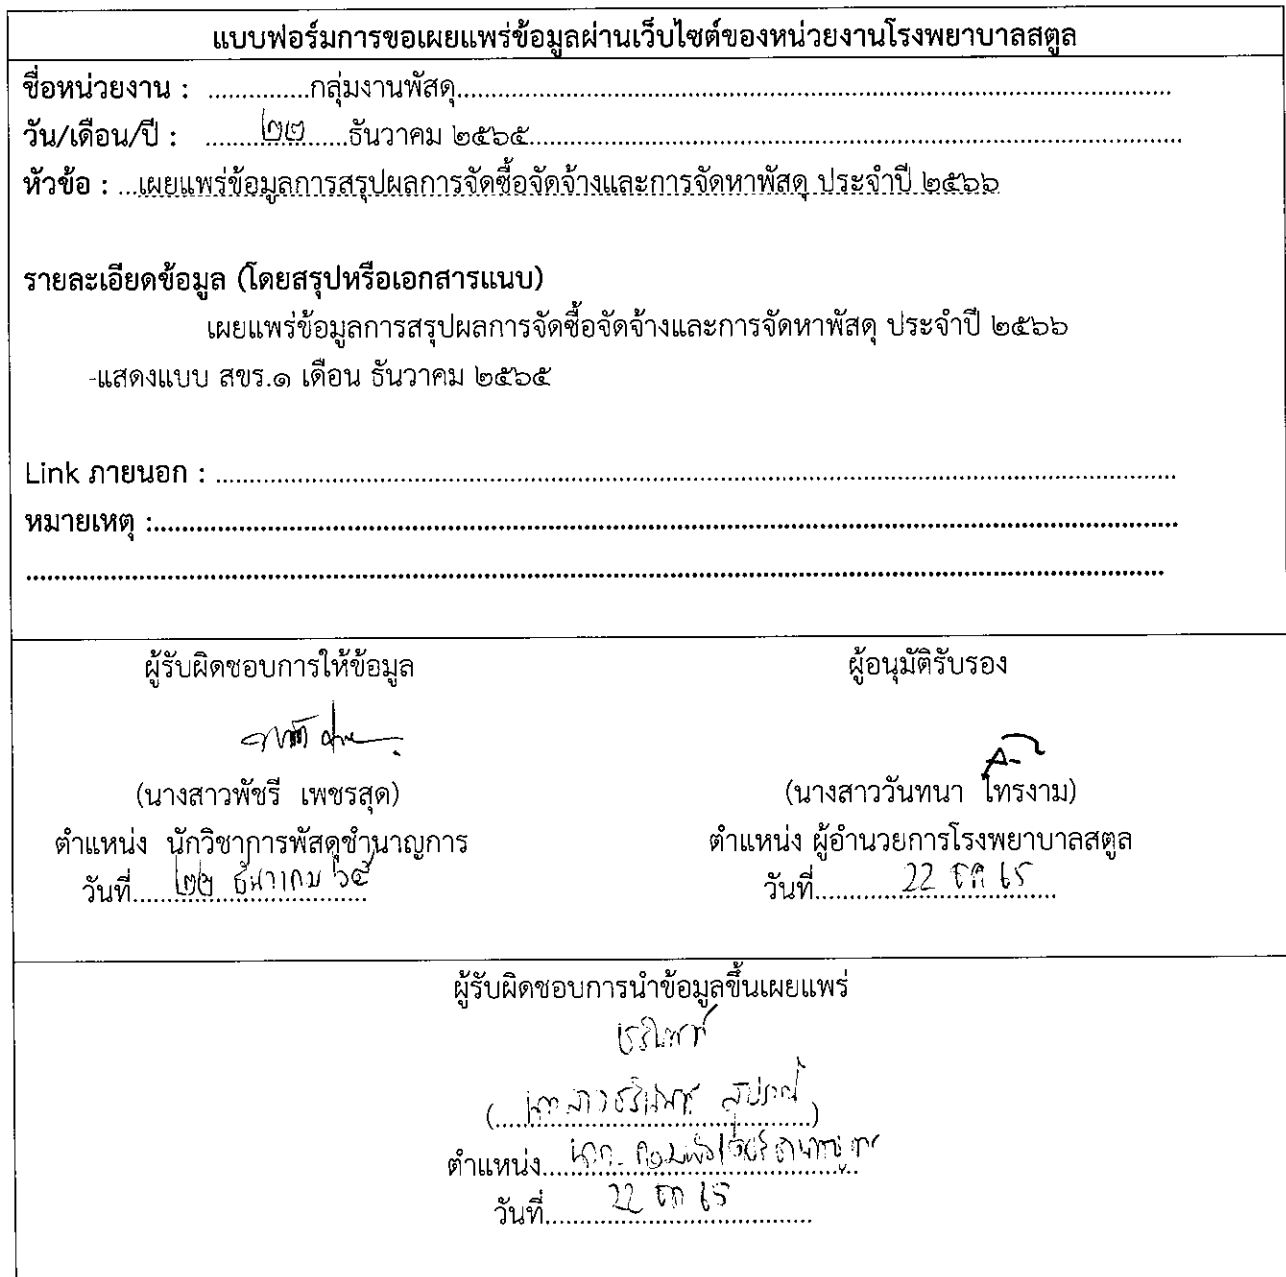 แบบฟอร์มการขอเผยแพร่ข้อมูลผ่านเว็บไซต์ของหน่วยงานโรงพยาบาลสตูล
ชื่อหน่วยงาน : ...............กลุ่มงานพัสดุ...............
วัน/เดือน/ปี : .........๒๒.......ธันวาคม ๒๕๖๕...............
หัวข้อ : ...เผยแพร่ข้อมูลการสรุปผลการจัดซื้อจัดจ้างและการจัดหาพัสดุ ประจำปี ๒๕๖๖
รายละเอียดข้อมูล (โดยสรุปหรือเอกสารแนบ)
เผยแพร่ข้อมูลการสรุปผลการจัดซื้อจัดจ้างและการจัดหาพัสดุ ประจำปี ๒๕๖๖
-แสดงแบบ สขร.๑ เดือน ธันวาคม ๒๕๖๕
Link ภายนอก : ...............
หมายเหตุ :...............
ผู้รับผิดชอบการให้ข้อมูล ผู้อนุมัติรับรอง
(นางสาวพัชรี เพชรสุด) (นางสาววันทนา ไทรงาม)
ตำแหน่ง นักวิชาการพัสดุชำนาญการ ตำแหน่ง ผู้อำนวยการโรงพยาบาลสตูล
วันที่.....๒๒ ธันวาคม ๖๕..... วันที่..........22 ธค 65.....
ผู้รับผิดชอบการนำข้อมูลขึ้นเผยแพร่
ตำแหน่ง
วันที่..........22 ธค 65..........